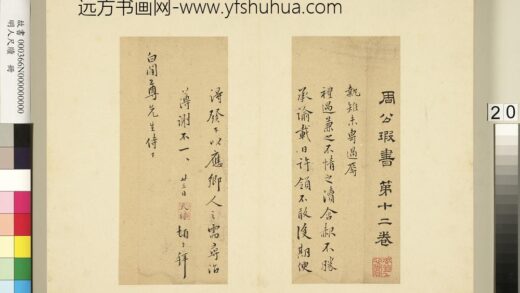 远方书画网-www.yfshuhua.com
故書 000366N00000000
明人尺牘 冊
20
周公瑕書 第十二卷
執雉未専過辱
裡過兼之不情之瀆含赧不勝
承諭載日許領不敢後期便
得發下以應鄉人之需尋治
薄謝不一、
廿三日 天球 頓首拜
白閒尊先生侍下